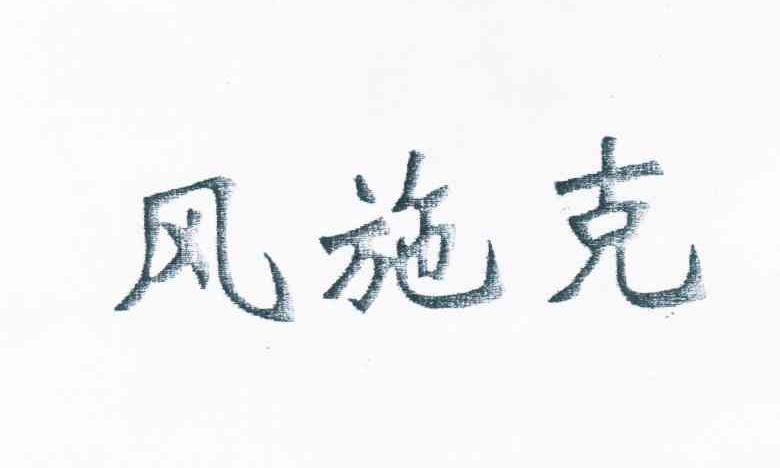 风施克